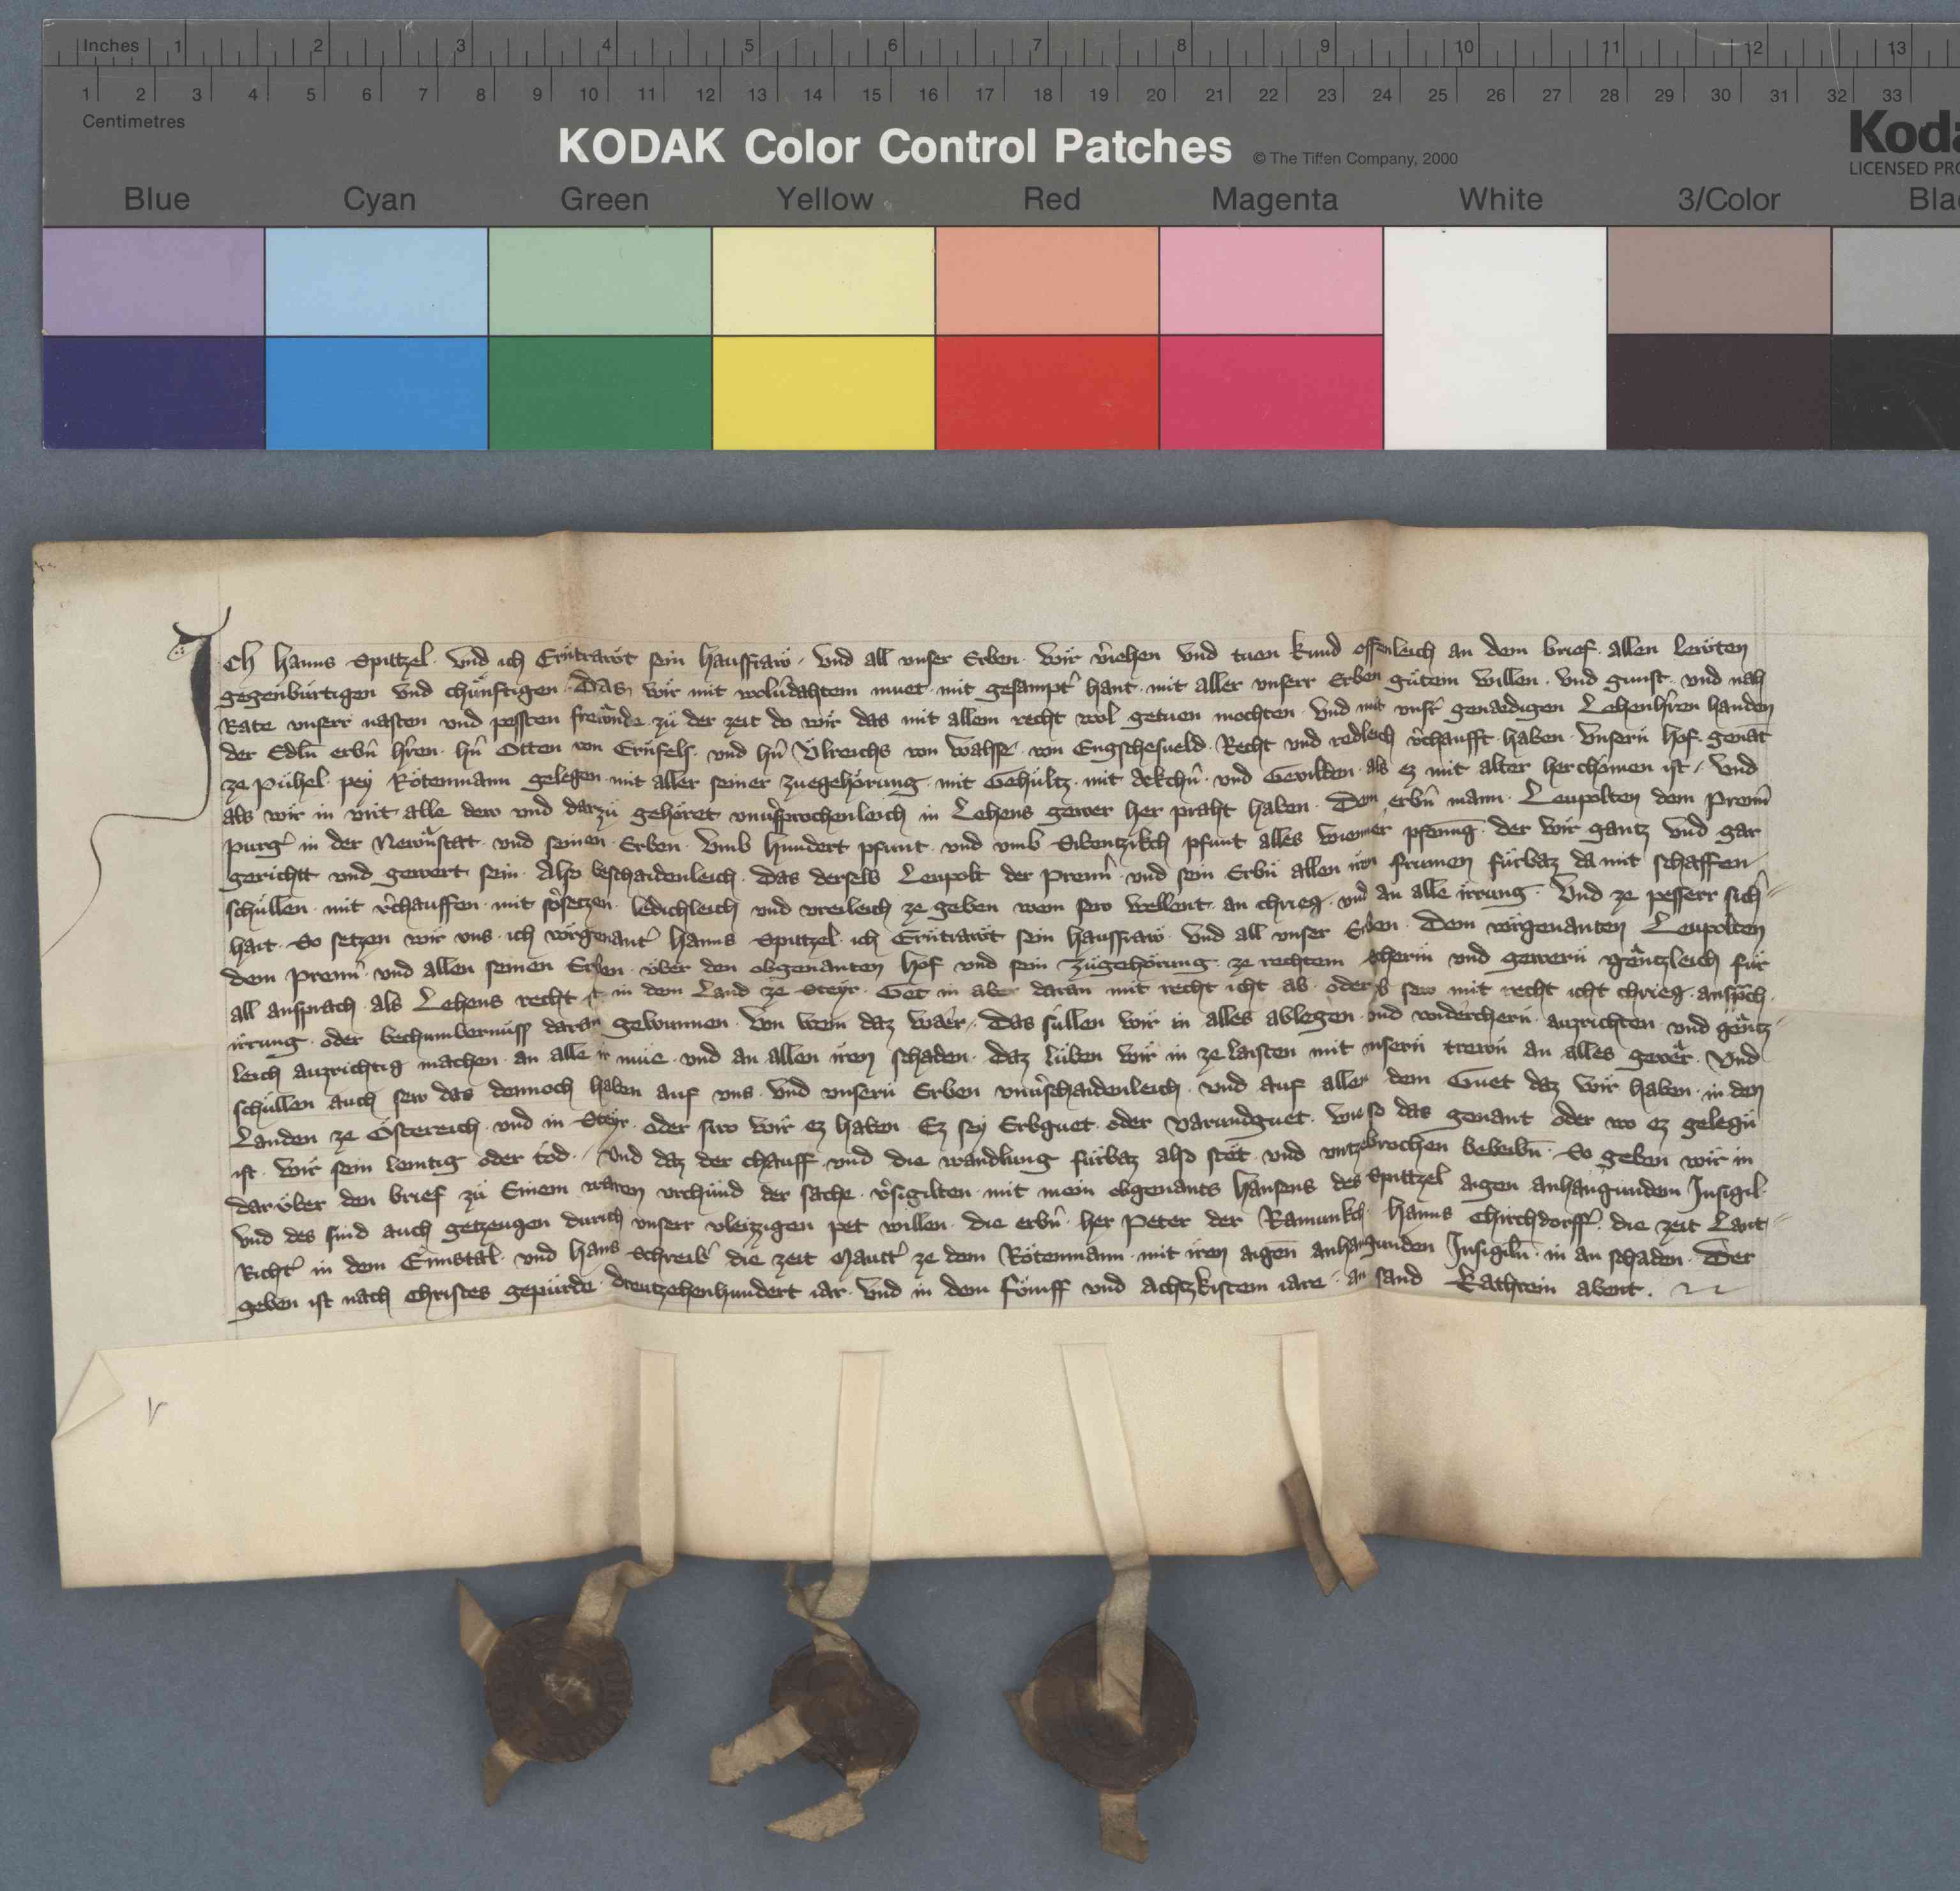 Inches 1 2 3 4 5 6 7 8 9 10 11 12 13
1 2 3 4 5 6 7 8 9 10 11 12 13 14 15 16 17 18 19 20 21 22 23 24 25 26 27 28 29 30 31 32 33
Centimetres
KODAK Color Control Patches © The Tiffen Company, 2000
Koda
LICENSED PRO
Blue Cyan Green Yellow Red Magenta White 3/Color Bla
Ich Hanns Spittzel · vnd ich Erntrawt sein hausfraw · vnd all vnser Erben · wir v̉iehen vnd tuen kund offenleich an dem brief · allen lewten
gegenburtigen vnd chunftigen · Das wir mit wolu̓dahtem muet · mit gesampt̉ hant · mit aller vnserr Erben gutem willen · vnd gunst · vnd nah
Rate vnserr nasten vnd pessten frewnde zu der zeit do wir das mit allem recht wol getuen mochten · vnd mit vnsr̉ genaedigen Lehenh̉ren handen
der Edln̄ erbn̉ h̉ren · hn̉ Otten von Ernfels · vnd hn̉ Vlreichs von walsse · von Engschesueld · Recht vnd redleich v̉chaufft haben · vnsern hof · genāt
ze puhel · pey Rotenmann gelegen · mit aller seiner zuegehorung · mit Gehultz · mit Akchn̉ · vnd Gevilden · als ez mit alter her chomen ist · vnd
als wir in mit alle dew vnd darzu gehoret vnu̓sprochenleich in Lehens gewer her praht haben · Dem erbn̉ mann · Leupolten dem Prenn̉
purg̉ in der Newnstat · vnd seinen Erben · vmb hundert pfunt · vnd vmb Sibentzikch pfunt alles wienner pfenng · der wir gantz vnd gar
gerichtt vnd gewert sein · Also beschaidenleich · das derselb Leupolt der Prenn̉ · vnd sein Erbn̄ allen iren frumen furbaz da mit schaffen
schullen · mit v̉chauffen · mit v̉setzen · ledichleich vnd vreileich ze geben wem sew wellent · an chrieg · vnd an alle irrung · Vnd ze pesserr sich̉
hait · So setzen wir vns · ich vorgenant̉ Hanns Spittzel · ich Erntrawt sein hausfraw · vnd all vnser Erben · Dem vorgenanten Leupolten
dem Prenn̉ · vnd allen seinen Erben · vber den obgenanten hof vnd sein zugehorung · ze rechtem scherm vnd gewern gentzleich fur
all ansprach · als Lehens recht ist in dem Land ze Steyr · Get in aber daran mit recht icht ab · oder sew mit recht icht chrieg · ansprch
irrung · oder bechumbernuss daran gewunnen · von wem daz waer · Das sullen wir in alles ablegen · vnd widerchern · auzrichten · vnd gentz
leich auzrichtig machen · an alle ir mue · vnd an allen iren schaden · daz luben wir in ze laisten mit vnsern trewn an alles gewer · Vnd
schullen auch sew das dennoch haben auf vns · vnd vnsern Erben vnu̓schaidenleich · vnd auf aller dem Guet daz wir haben · in den
Landen ze Ostereich · vnd in Steyr · oder swo wir ez haben · Ez sey Erbguet · oder varundguet · wie so das genant oder wo ez gelegn̄
ist · wir sein lemtig oder tod · Vnd daz der chauff vnd die wandlung furbaz also stet · vnd vntzebrochen beleibn̄ · So geben wir in
daruber den brief zu Einem waren vrchund der sache · v̉sigilten · mit mein obgenants Hansens des Spittzel aigen anhangundem Insigil ·
vnd des sind auch getzeugen durich vnserr vleizzigen pet willen · die erbn̉ · her Peter der Ramunkch · Hanns Chirchdorff̉ · die zeit Lant
Richt̉ in dem Ennstal · vnd Hans Schreib̉ die zeit Mautt̉ ze dem Rotenmann · mit iren aigen anhangunden Insigiln̄ · in an schaden · Der
geben ist nach Christes gepurde · dreutzehenhundert iar · vnd in dem fomff vnd achtzkistem iare · an sand Kathrein abent ·